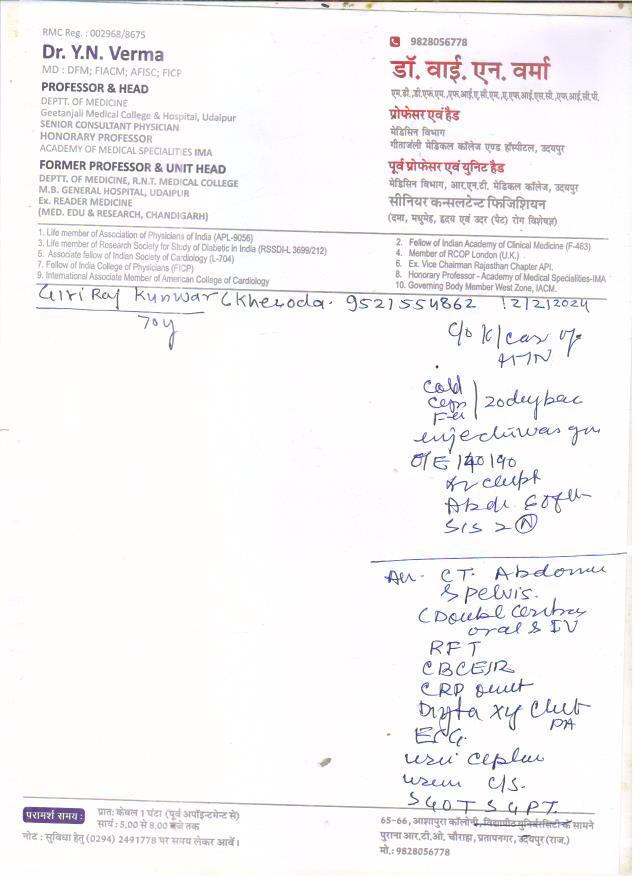 RMC Reg. : 002968/8675
Dr. Y.N. Verma
MD : DFM; FIACM; AFISC; FICP
PROFESSOR & HEAD
DEPTT. OF MEDICINE
Geetanjali Medical College & Hospital, Udaipur
SENIOR CONSULTANT PHYSICIAN
HONORARY PROFESSOR
ACADEMY OF MEDICAL SPECIALITIES IMA
FORMER PROFESSOR & UNIT HEAD
DEPTT. OF MEDICINE, R.N.T. MEDICAL COLLEGE
M.B. GENERAL HOSPITAL, UDAIPUR
Ex. READER MEDICINE
(MED. EDU & RESEARCH, CHANDIGARH)
9828056778
डॉ. वाई. एन. वर्मा
एम.डी.,डी.एफ.एम.,एफ.आई.ए.सी.एम.,ए.एफ.आई.एस.सी.,एफ.आई.सी.पी.
प्रोफेसर एवं हैड
मेडिसिन विभाग
गीतांजली मेडिकल कॉलेज एण्ड हॉस्पीटल, उदयपुर
पूर्व प्रोफेसर एवं युनिट हैड
मेडिसिन विभाग, आर.एन.टी. मेडिकल कॉलेज, उदयपुर
सीनियर कन्सलटेन्ट फिजिशियन
(दमा, मधुमेह, हृदय एवं उदर (पेट) रोग विशेषज्ञ)
1. Life member of Association of Physicians of India (APL-9056)
3. Life member of Research Society for Study of Diabetic in India (RSSDI-L 3699/212)
5. Associate fellow of Indian Society of Cardiology (L-704)
7. Fellow of India College of Physicians (FICP)
9. International Associate Member of American College of Cardiology
2. Fellow of Indian Academy of Clinical Medicine (F-463)
4. Member of RCOP London (U.K.)
6. Ex. Vice Chairman Rajasthan Chapter API.
8. Honorary Professor - Academy of Medical Specialities-IMA
10. Governing Body Member West Zone, IACM.
Giri Raj Kunwar (Kheroda. 9521554862 12/2/2024
70y
C/o K/case of
HTN
Cold
20 day back
O/E 140/90
S1S2 (N)
Adv. CT. Abdomen
& pelvis.
(Double Contrast
oral & IV
RFT
CBC ESR
CRP
Digital Xray Chest
PA
ECG.
C/S.
SGOT SGPT.
परामर्श समय :
प्रात: केवल 1 घंटा (पूर्व अपॉइन्टमेन्ट से)
सायं : 5.00 से 8.00 बजे तक
नोट : सुविधा हेतु (0294) 2491778 पर समय लेकर आवें।
65-66, आशापुरा कॉलोनी, विद्यापीठ युनिवरसिटी के सामने
पुराना आर.टी.ओ. चौराहा, प्रतापनगर, उदयपुर (राज.)
मो.: 9828056778